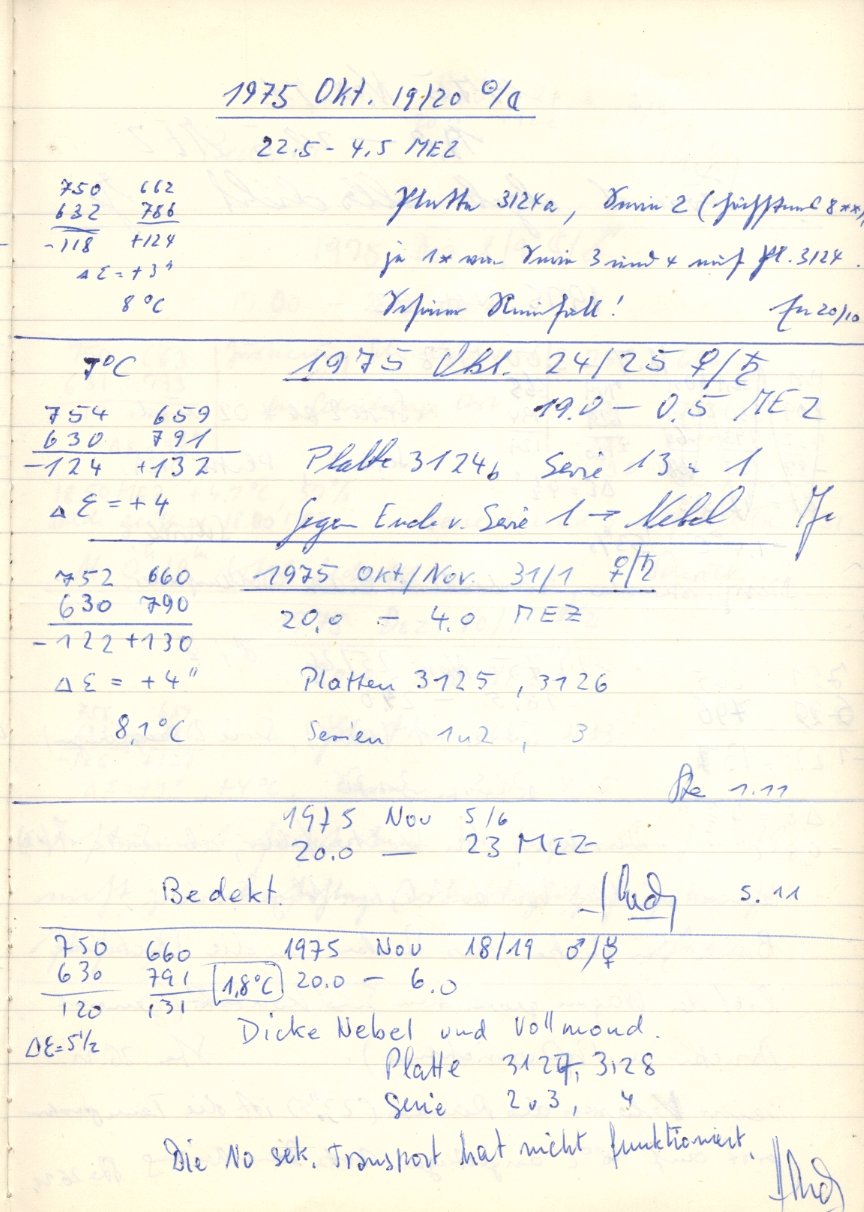 1975 Okt. 19/20 ☉/☾
22.5 - 4.5 MEZ
750 662 Platte 3124a, Serie 2 (höchstens 8**)
632 786
-118 +124 je 1* von Serie 3 und 4 auf Pl. 3124.
Δε = +3"
8°C Schöner Reinfall! 20/10
7°C 1975 Okt. 24/25 ♀/♄
19.0 - 0.5 MEZ
754 659
630 791
-124 +132 Platte 3124b Serie 13 u 1
Δε = +4 Gegen Ende v. Serie 1 → Nebel
752 660 1975 Okt/Nov. 31/1 ♀/♄
630 790 20.0 - 4.0 MEZ
-122 +130
Δε = +4" Platten 3125, 3126
8,1°C Serien 1u2, 3
1.11
1975 Nov 5/6
20.0 - 23 MEZ
Bedekt. 5.11
750 660 1975 Nov 18/19 ♂/☿
630 791 1,8°C 20.0 - 6.0
120 131
Δε=5½ Dicke Nebel und Vollmond.
Platte 3127, 3128
Serie 2u3, 4
Die No sek. Transport hat nicht funktioniert.